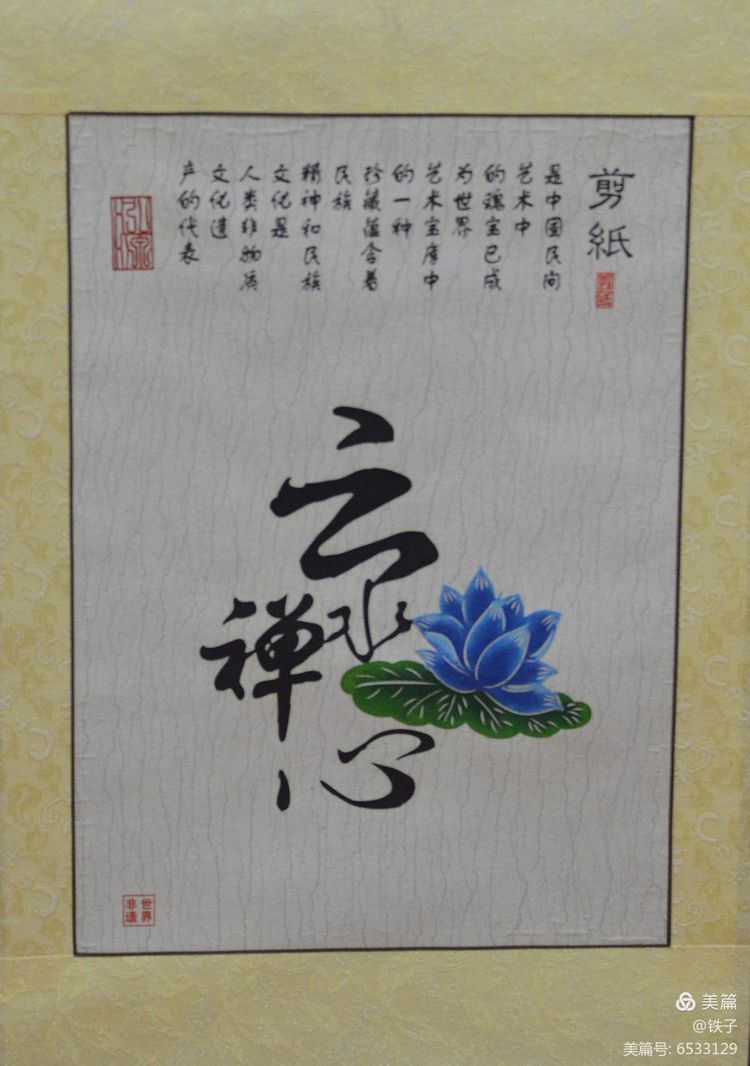 剪紙
剪紙
是中国民间
艺术中
的瑰宝已成
为世界
艺术宝库中
的一种
珍藏蕴含着
民族
精神和民族
文化是
人类非物质
文化遗
产的代表
云水
禅心
世界
非遗
美篇
@铁子
美篇号: 6533129